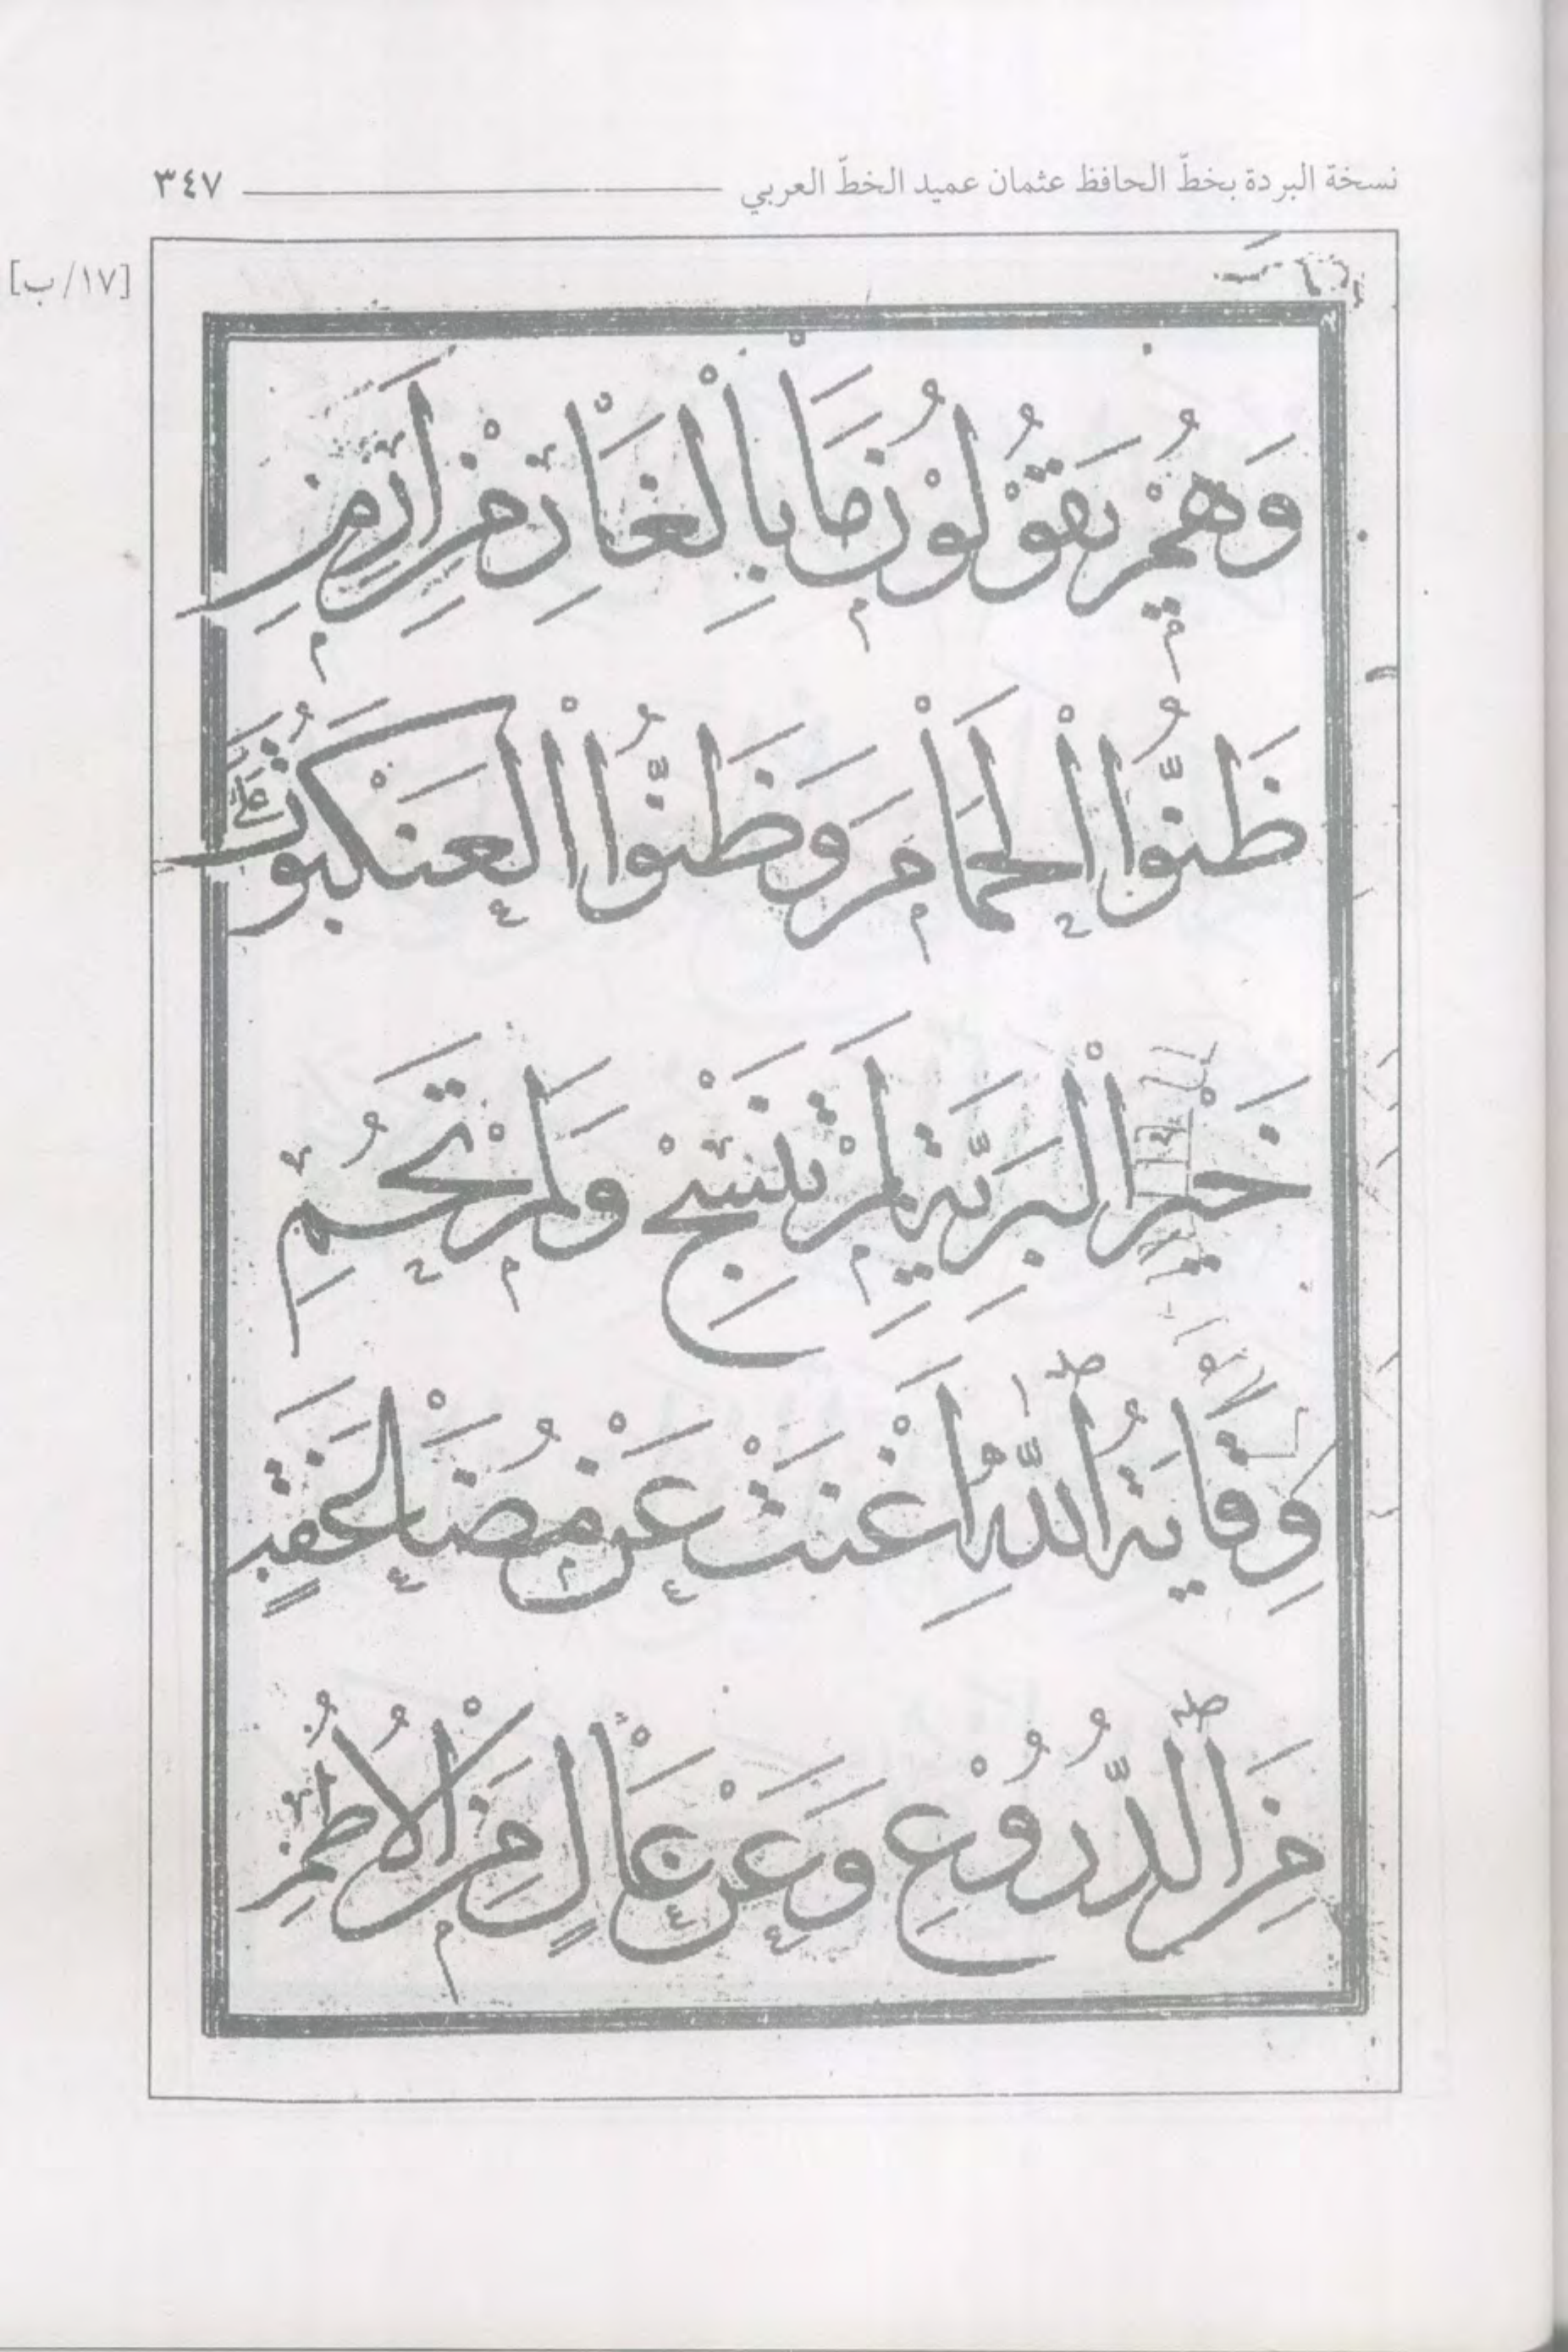 نسخة البردة بخطّ الحافظ عثمان عميد الخطّ العربي ٣٤٧
[١٧/ ب]
وَهُمْ يَقُوْلُوْنَ مَا بِالْغَارِ مِنْ اَرِمِ
ظَنُّوا الْحَمَامَ وَظَنُّوا الْعَنْكَبُوْتَ عَلٰى
خَيْرِ الْبَرِيَّةِ لَمْ تَنْسُجْ وَلَمْ تَحُمِ
وِقَايَةُ اللّٰهِ اَغْنَتْ عَنْ مُضَاعَفَةٍ
مِنَ الدُّرُوْعِ وَعَنْ عَالٍ مِنَ الْاُطُمِ